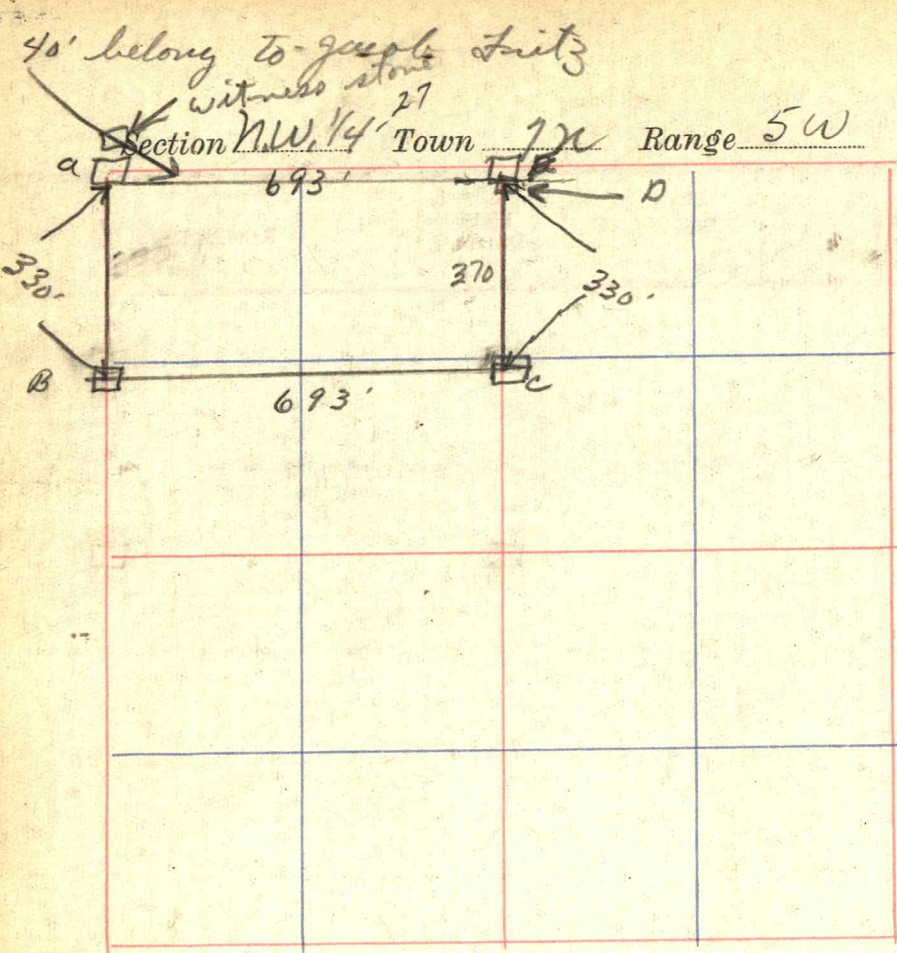 40' belong to Jacob Fritz
witness stone
Section N.W. 1/4 27 Town 7N Range 5W
a 693' E
D
330' 370 330'
B C
693'